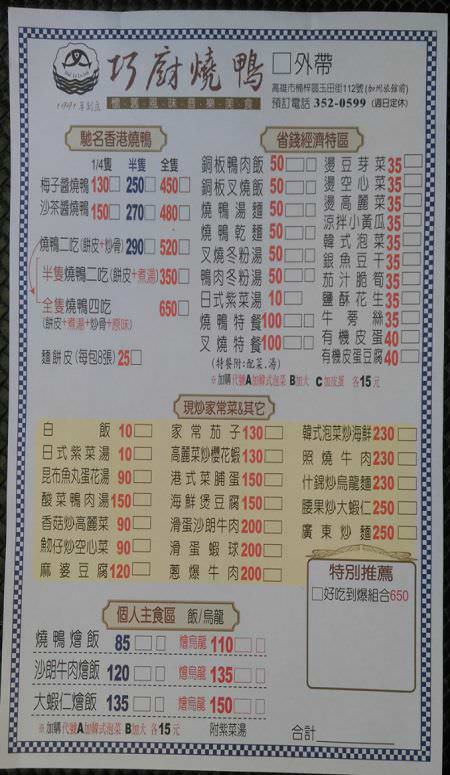 1991年創立
巧廚燒鴨
懷舊風味音樂美食
□外帶
高雄市楠梓區玉田街112號(加州旅館前)
預訂電話 352-0599 (週日定休)
馳名香港燒鴨
1/4隻 半隻 全隻
梅子醬燒鴨130□ 250□ 450□
沙茶醬燒鴨150□ 270□ 480□
燒鴨二吃(餅皮+炒骨) 290□ 520□
半隻燒鴨二吃(餅皮+煮湯)350□
全隻燒鴨四吃 650□
(餅皮+煮湯+炒骨+原味)
麵餅皮(每包8張) 25□
省錢經濟特區
銅板鴨肉飯 50
銅板叉燒飯 50
燒鴨湯麵 50
燒鴨乾麵 50
叉燒冬粉湯 50
鴨肉冬粉湯 50
日式紫菜湯 10
燒鴨特餐 100
叉燒特餐 100
(特餐附:配菜.湯)
燙豆芽菜 35
燙空心菜 35
燙高麗菜 35
涼拌小黃瓜 35
韓式泡菜 35
銀魚豆干 35
茄汁脆筍 35
鹽酥花生 35
牛蒡絲 35
有機皮蛋 40
有機皮蛋豆腐 40
※加購代號A加韓式泡菜 B加大 C加皮蛋 各15元
現炒家常菜&其它
白飯 10□
日式紫菜湯 10□
昆布魚丸蛋花湯 90□
酸菜鴨肉湯 150□
香菇炒高麗菜 90□
魩仔炒空心菜 90□
麻婆豆腐 120□
家常茄子 130□
高麗菜炒櫻花蝦 130□
港式菜脯蛋 150□
海鮮煲豆腐 150□
滑蛋沙朗牛肉 200□
滑蛋蝦球 200□
蔥爆牛肉 200□
韓式泡菜炒海鮮 230□
照燒牛肉 230□
什錦炒烏龍麵 230□
腰果炒大蝦仁 250□
廣東炒麵 250□
特別推薦
□好吃到爆組合650
個人主食區 飯/烏龍
燒鴨燴飯 85□□ 燴烏龍 110□□
沙朗牛肉燴飯 120□□ 燴烏龍 135□□
大蝦仁燴飯 135□□ 燴烏龍 150□□
※加購代號A加韓式泡菜 B加大 各15元 附紫菜湯
合計